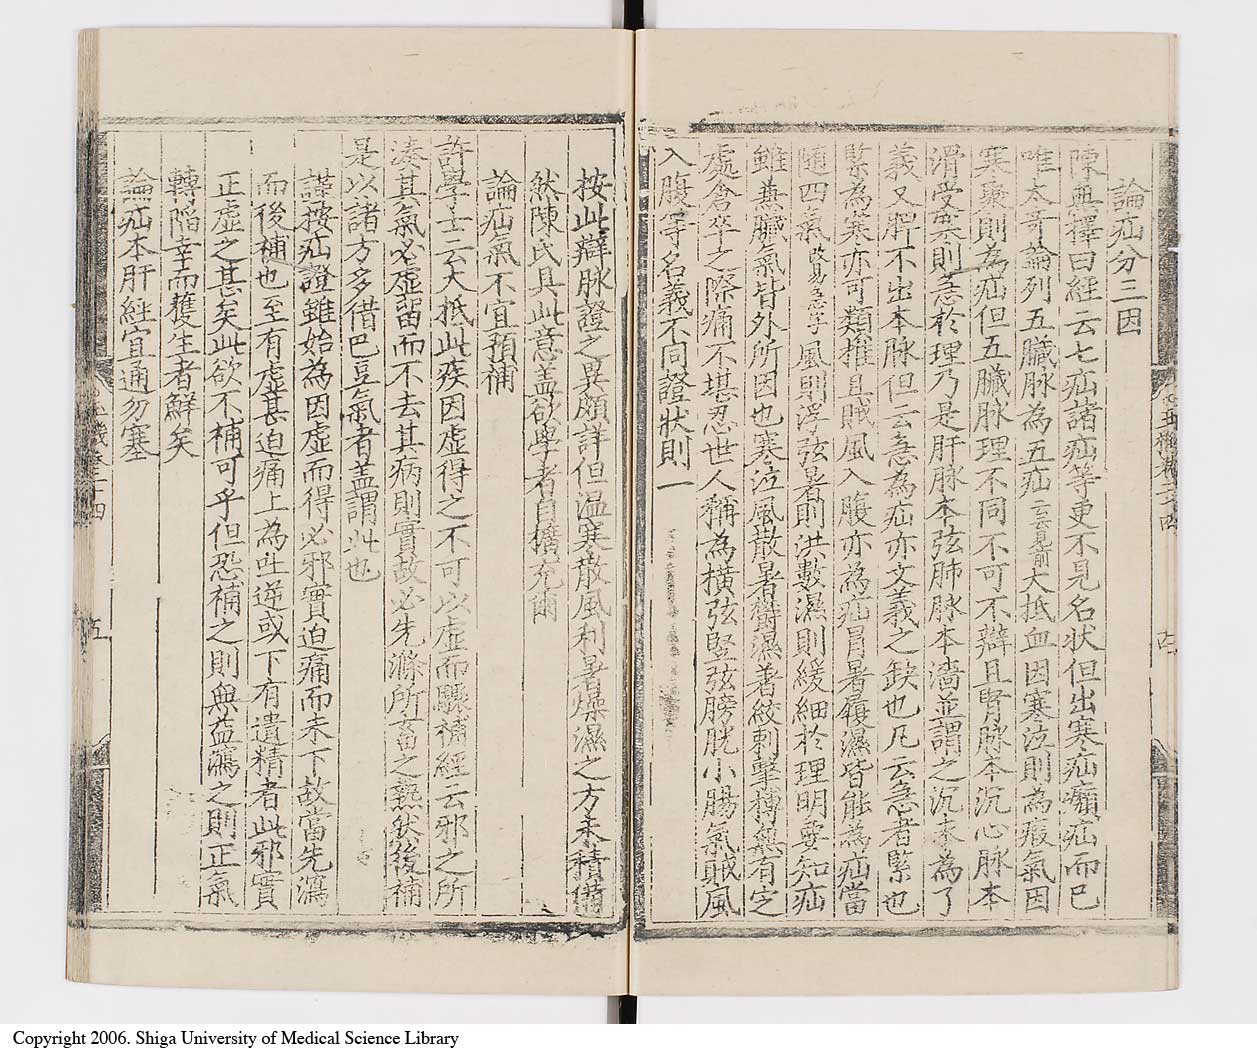 論疝分三因
陳無擇曰經云七疝諸疝等更不見名状但出寒疝癩疝而已
唯大奇論列五臓脉為五疝云云見前大抵血因寒泣則為瘕氣因
寒聚則為疝但五臓脉理不同不可不辯且腎脉本沉心脉本
滑受寒則急於理乃是肝脉本弦肺脉本濇並謂之沉未為了
義又脾不出本脉但云急為疝亦文義之缺也凡云急者緊也
緊為寒亦可類推且賊風入腹亦為疝冐暑履濕皆能為疝當
随四氣改易急字風則浮弦暑則洪數濕則緩細於理明要知疝
雖兼臓氣皆外所因也寒泣風散暑欝濕著絞刺擊搏無有定
處倉卒之際痛不堪忍世人稱為横弦竪弦膀胱小腸氣賊風
入腹等名義不同證狀則一
按此辯脉證之異頗詳但温寒散風利暑燥濕之方未積備
然陳氏具此意盖欲學者自擴充爾
論疝氣不宜預補
許學士云大抵此疾因虚得之不可以虚而驟補經云邪之所
湊其氣必虚留而不去其病則實故必先滌所畜之熱然後補
是以諸方多借巴豆氣者盖謂此也
謹按疝證雖始為因虚而得必邪實迫痛而未下故當先瀉
而後補也至有虚甚迫痛上為吐逆或下有遺精者此邪實
正虚之甚矣此欲不補可乎但恐補之則與益瀉之則正氣
轉陥幸而獲生者鮮矣
論疝本肝經宜通勿塞
五
Copyright 2006. Shiga University of Medical Science Library